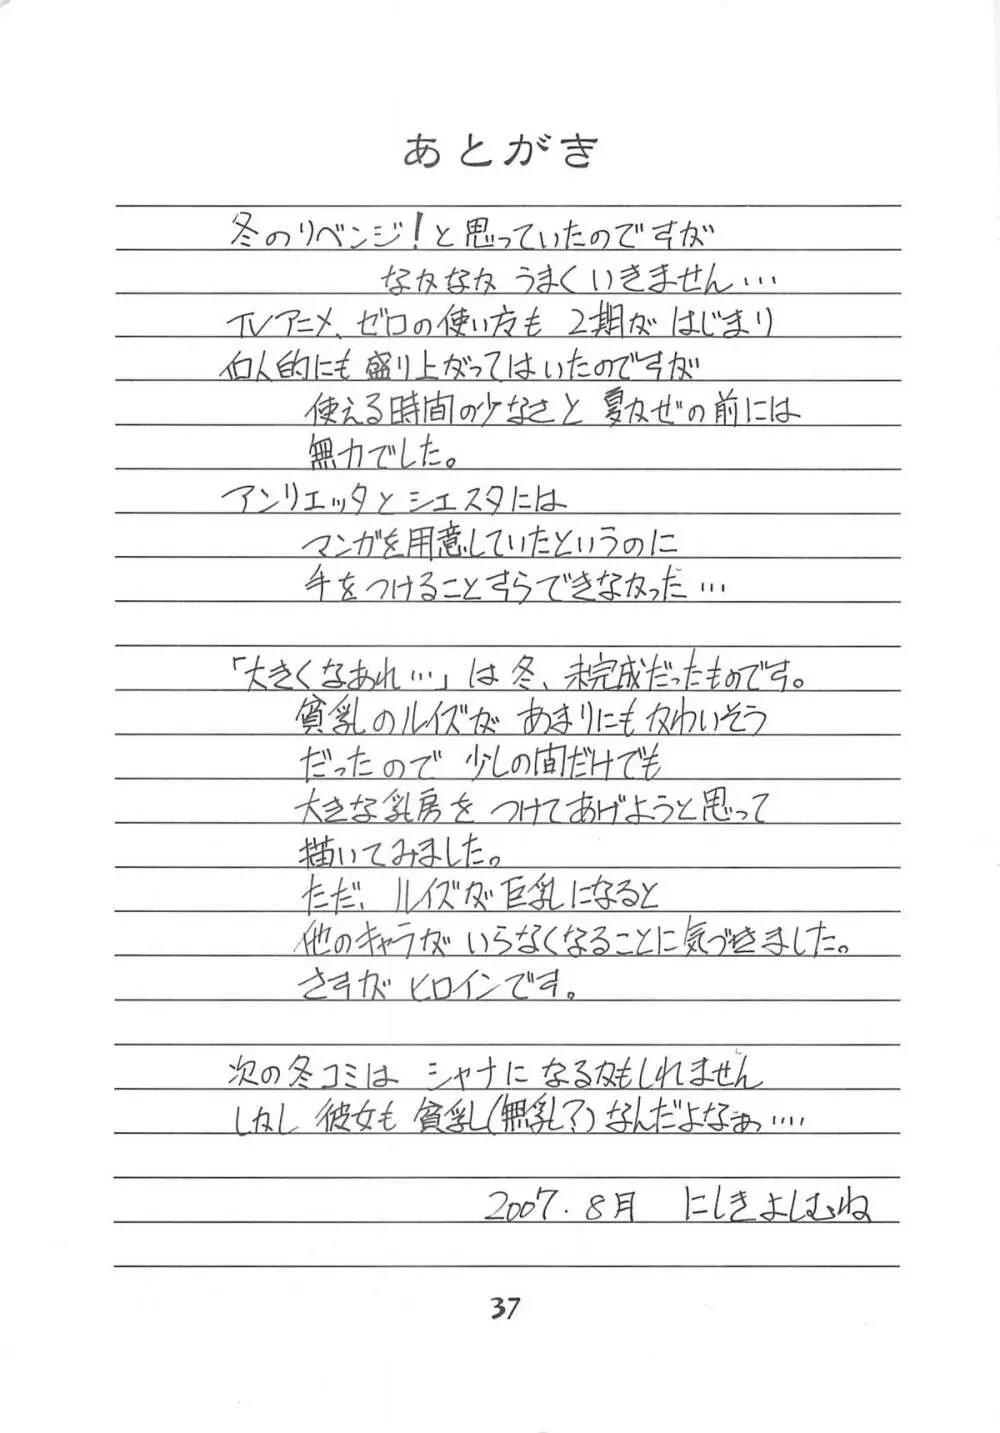 あとがき
冬のリベンジ!と思っていたのですが
なかなか うまくいきません…
TVアニメ、ゼロの使い方も 2期が はじまり
個人的にも 盛り上がってはいたのですが
使える時間の少なさと 夏かぜの前には
無力でした。
アンリエッタと シエスタには
マンガを用意していたというのに
手をつけることすらできなかった…
「大きくなあれ…」は 冬、未完成だったものです。
貧乳のルイズが あまりにも かわいそう
だったので 少しの間だけでも
大きな乳房を つけてあげようと思って
描いてみました。
ただ、ルイズが 巨乳になると
他のキャラが いらなくなることに気づきました。
さすが ヒロインです。
次の冬コミは シャナに なるかもしれません
しかし 彼女も 貧乳(無乳?)なんだよなぁ….
2007.8月 にしきよしむね
37